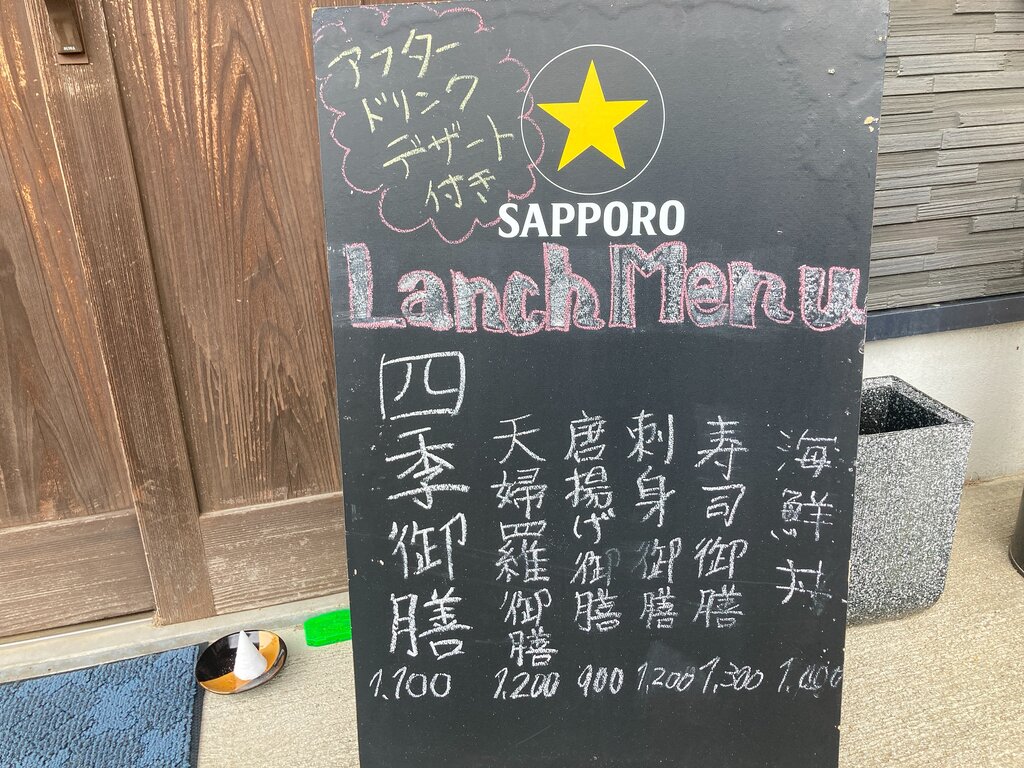 アフター
ドリンク
デザート
付き
SAPPORO
Lanch Menu
四季御膳
1,100
天婦羅御膳
1,200
唐揚げ御膳
900
刺身御膳
1,200
寿司御膳
1,300
海鮮丼